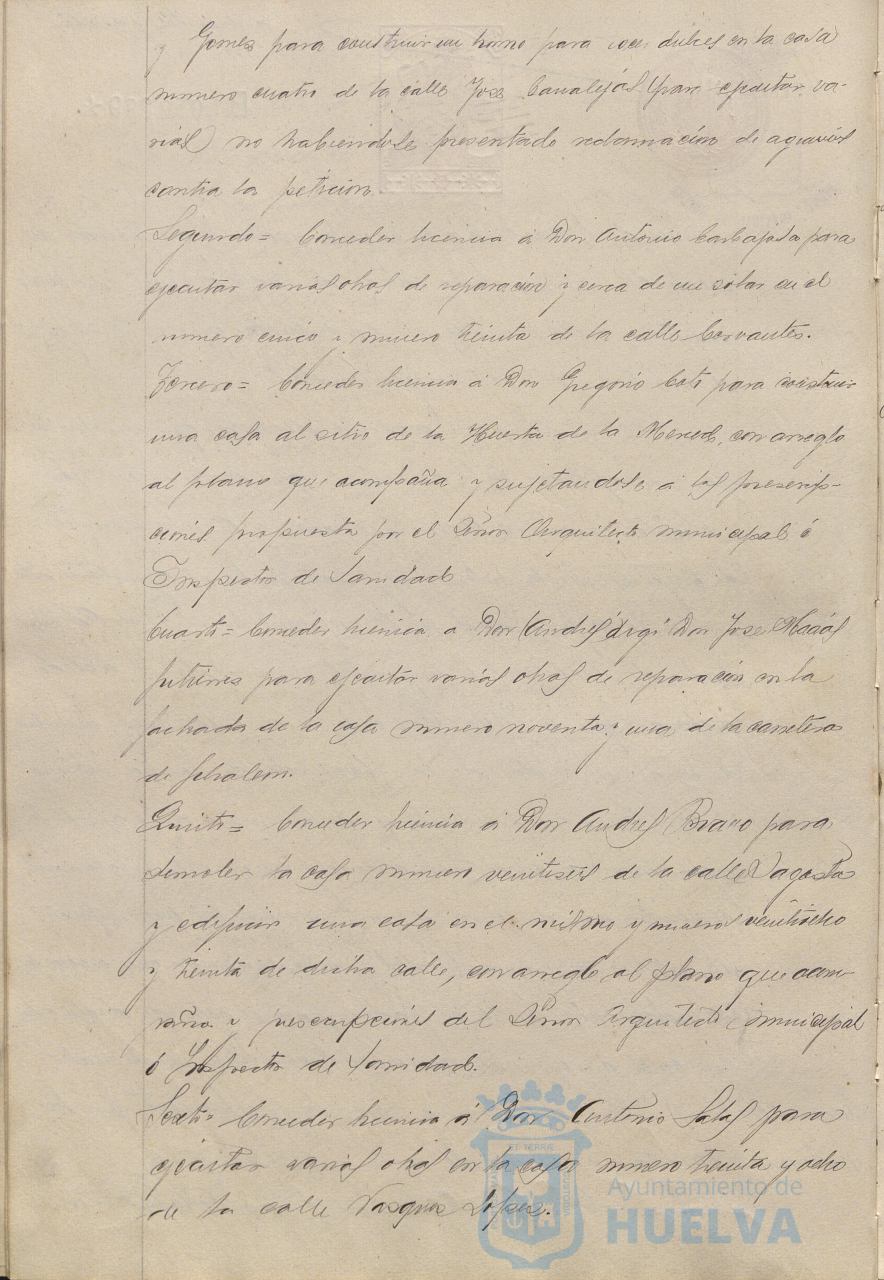 y Gomez para construir un horno para coser dulces en la casa
numero cuatro de la calle Jose Canalejas (para ejecutar va-
rias) no habiendose presentado reclamacion de agravios
contra la peticion.
Segundo = Conceder licencia á Don Antonio Carbajosa para
ejecutar varias obras de reparacion y cerca de un solar en el
numero cinco y numero treinta de la calle Cervantes.
Tercero = Conceder licencia á Don Gregorio Coto para construir
una casa al sitio de la Huerta de la Merced, con arreglo
al plano que acompaña y sujetandose á las prescrip-
ciones propuesta por el Señor Arquitecto municipal é
Inspector de Sanidad
Cuarto = Conceder licencia a Don (Andres digo Don Jose Macias
Gutierres para ejecutar varias obras de reparacion en la
fachada de la casa numero noventa y una de la carretera
de Gibraleon.
Quinto = Conceder licencia á Don Andres Bravo para
demoler la casa numero veintiseis de la calle
y edificar una casa en el mismo y numeros veintiocho
y treinta de dicha calle, con arreglo al plano que acom-
paña y prescripciones del Señor Arquitecto municipal
é Inspector de Sanidad.
Sexto = Conceder licencia á Don Antonio Salas para
ejecutar varias obras en la casa numero treinta y ocho
de la calle Vasquez Lopez.
Ayuntamiento de
HUELVA